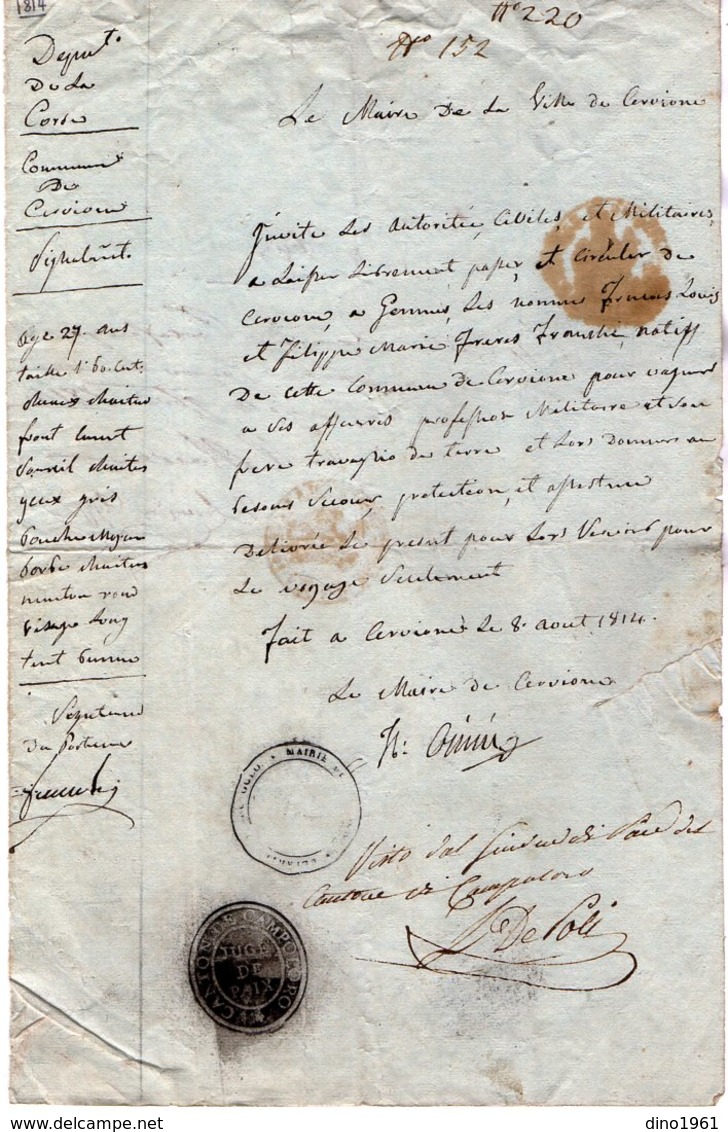 1814
No 220
No 152
Depart.t
De La
Corse
Commune
De
Cervione
Signalm.t
Age 27 ans
taille 1 60 Cent.
cheveux chaiten
front
Sourcil chaiten
yeux gris
bouche Moyen
barbe chaiten
menton rond
visage Long
teint brunne
Signature
Du Porteur
Le Maire De La Ville de Cervione
Invite Les Autorités, Civiles, et Militaires,
a Laisser Librement passer, et circuler de
Cervione, a Gennes, Les nommé François Louis
et Filippe Marie Freres Franshi, natiff
De cette Commune de Cervione pour vaquer
a Ses affaires profession Militaire et Son
frere travaglio de terre et Lors Donner au
besoins Secour, protection, et assistence
Délivrée Le present pour Lors Servire pour
Le voyage Seulement
Fait a Cervione Le 8 aout 1814.
Le Maire de Cervione
MAIRIE DE
Visto dal Giudice di Pace del
Cantone di Campoloro
De Poli
CANTON DE CAMPOLORO
JUGE
DE
PAIX
dino1961